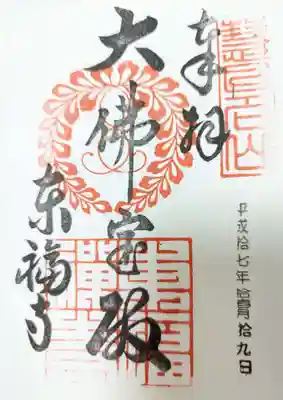 奉拝
大佛宝殿
東福寺
平成拾七年拾壹月拾九日